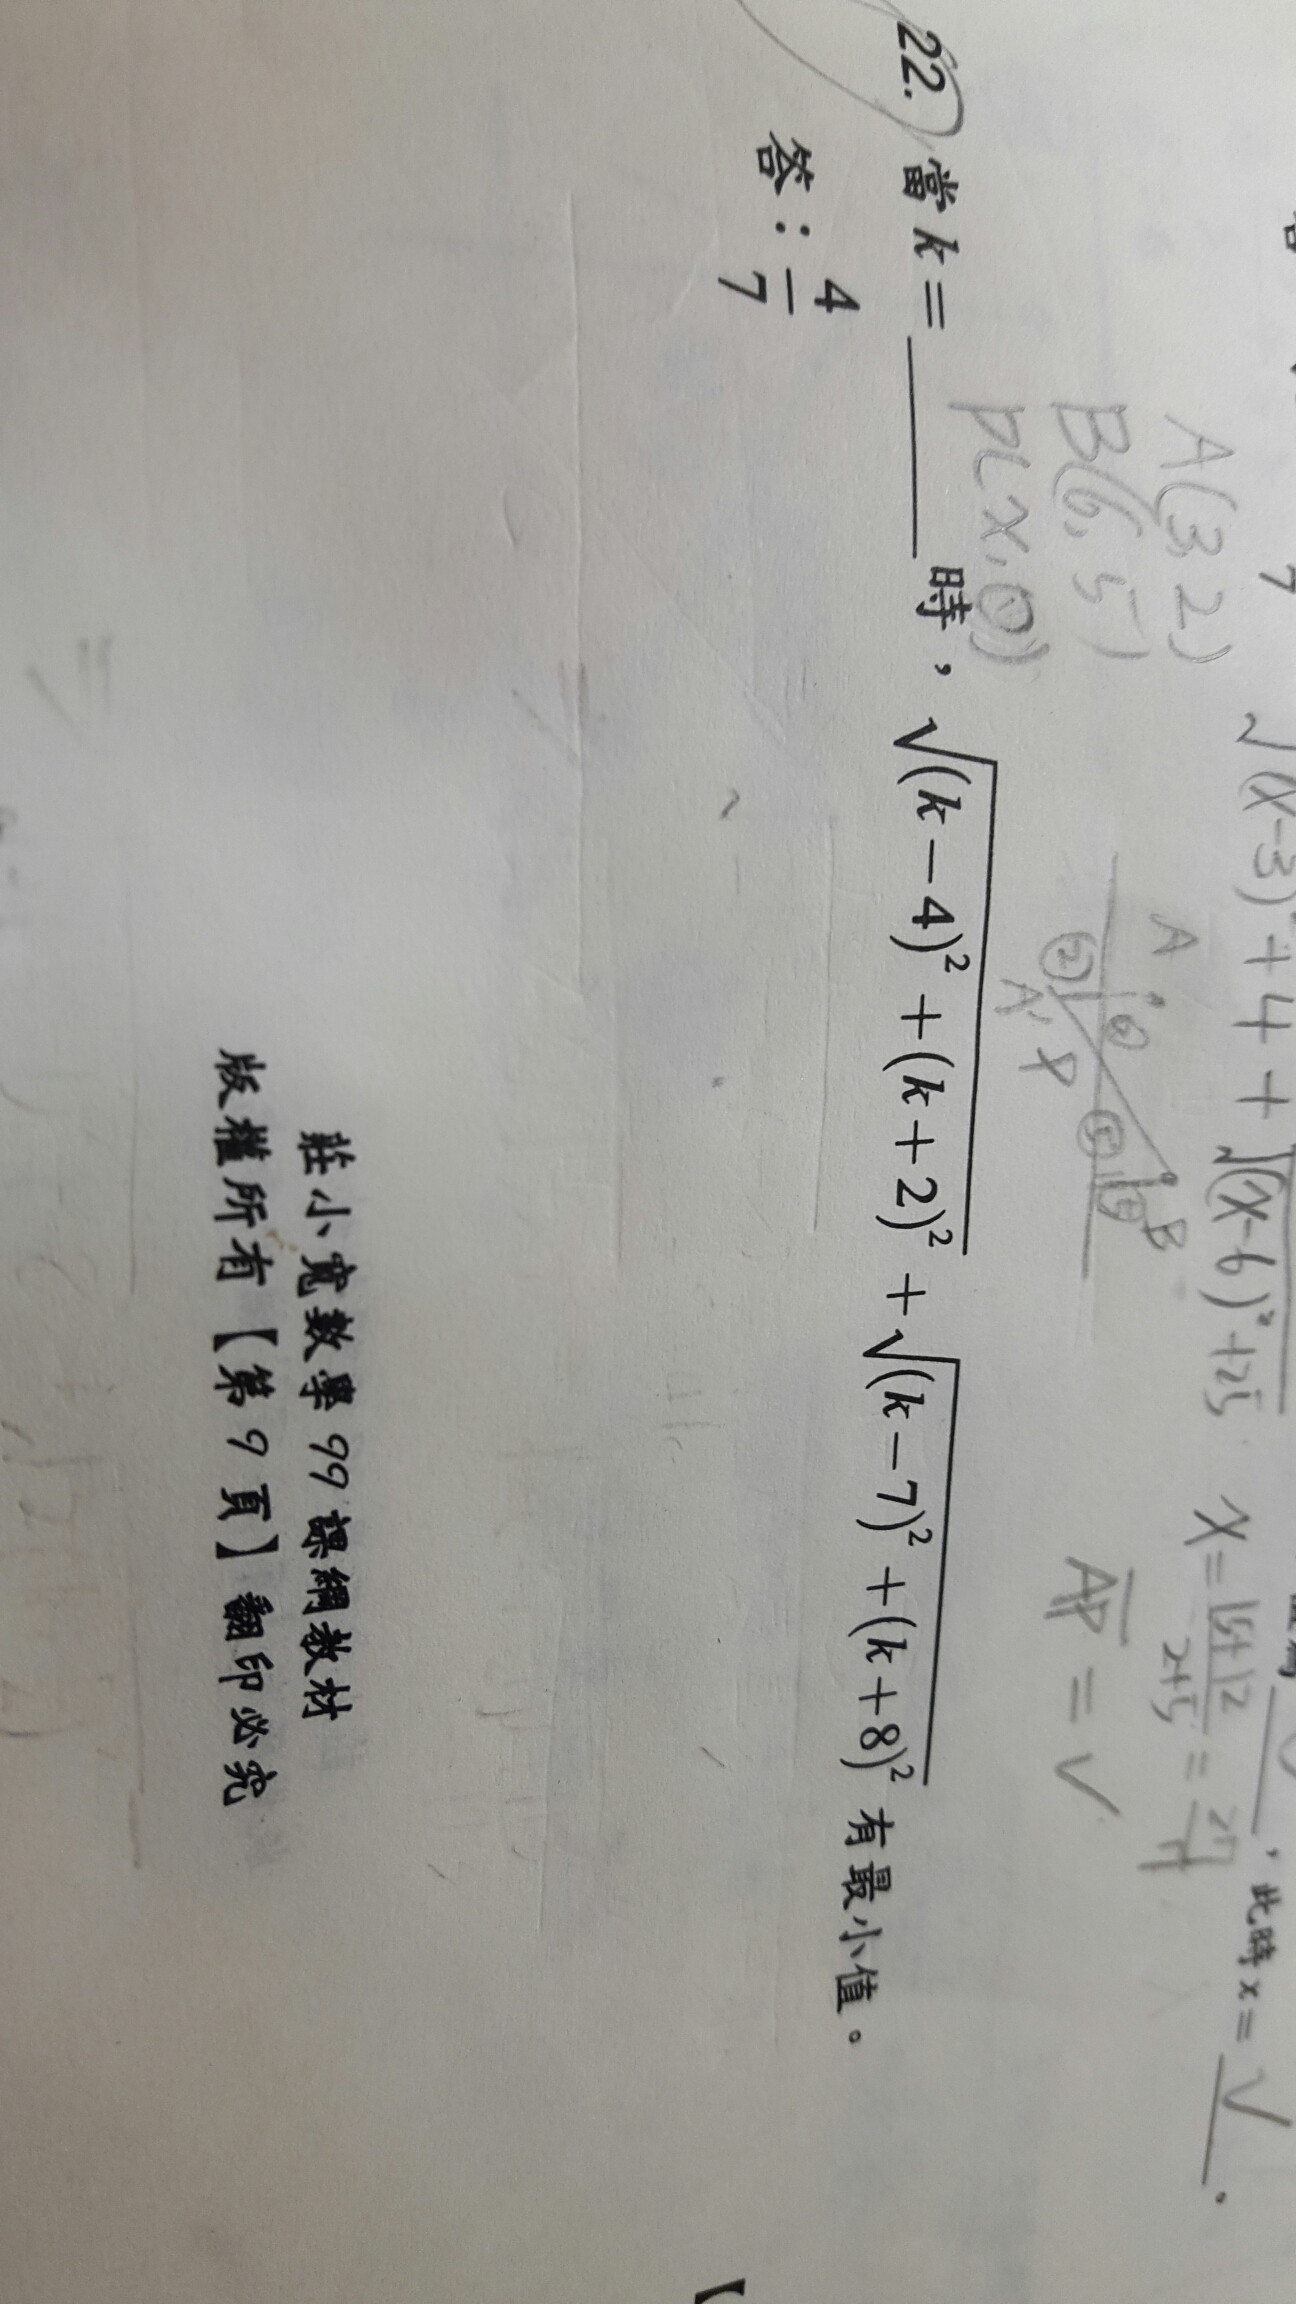 √(x-3)²+4 + √(x-6)²+25 x = 15+12/2+5 = 27/7
, 此時 x = √ .
A(3, 2)
B(6, 5)
P(x, 0)
A ② B
② A' P ⑤ ⑤
AP = √
22. 當 k = ______ 時，√(k-4)²+(k+2)² + √(k-7)²+(k+8)² 有最小值。
答：4/7
莊小寬數學 99 課綱教材
版權所有【第 9 頁】翻印必究
【